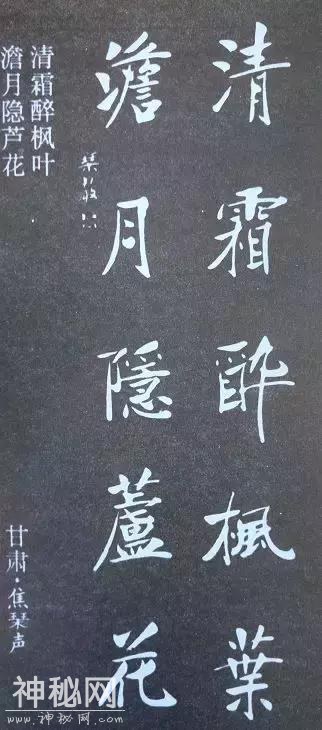 清霜酔楓葉
澹月隱蘆花
清霜醉枫叶
澹月隐芦花
甘肃·焦琹声
神秘网
www.神秘网.com